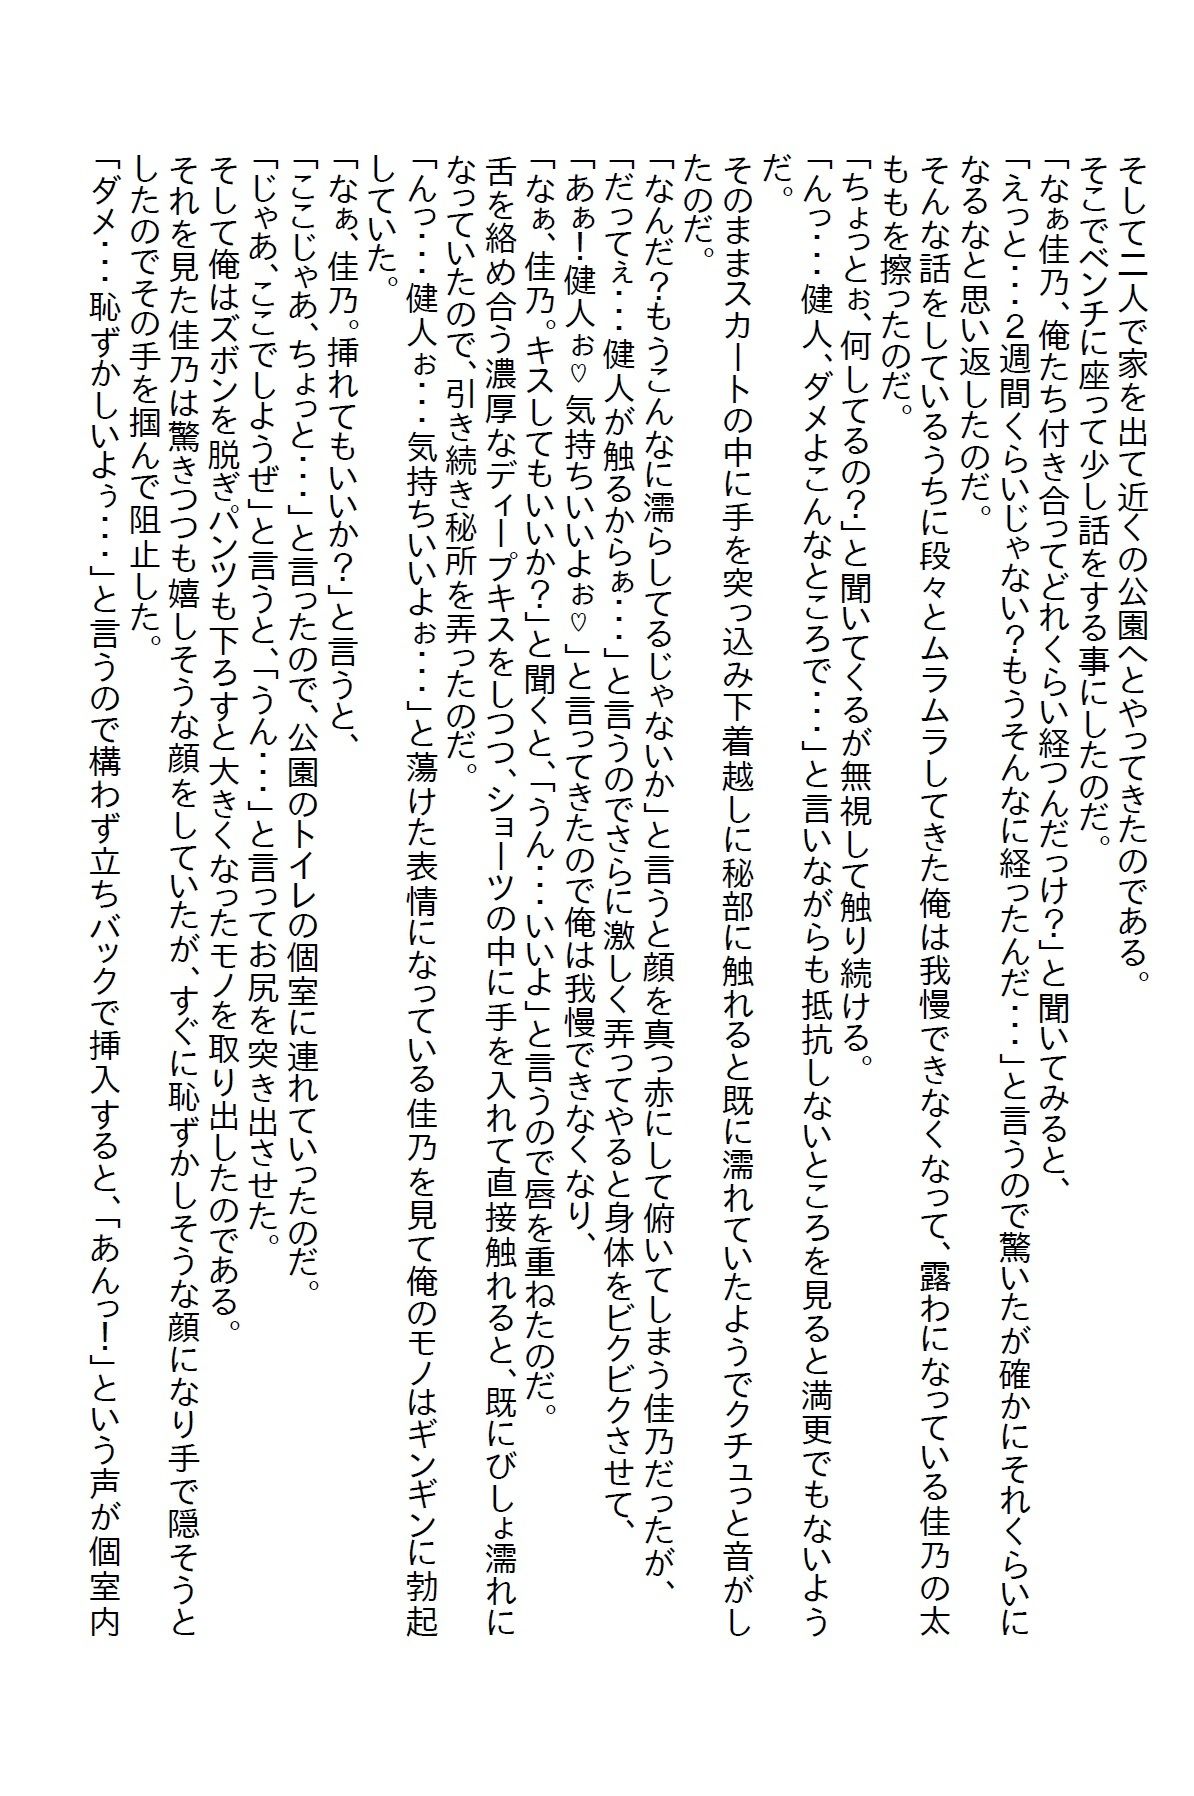 そして二人で家を出て近くの公園へとやってきたのである。
そこでベンチに座って少し話をする事にしたのだ。
「なぁ佳乃、俺たち付き合ってどれくらい経つんだっけ？」と聞いてみると、
「えっと・・・２週間くらいじゃない？もうそんなに経ったんだ・・・」と言うので驚いたが確かにそれくらいに
なるなと思い返したのだ。
そんな話をしているうちに段々とムラムラしてきた俺は我慢できなくなって、露わになっている佳乃の太
ももを擦ったのだ。
「ちょっとぉ、何してるの？」と聞いてくるが無視して触り続ける。
「んっ・・・健人、ダメよこんなところで・・・」と言いながらも抵抗しないところを見ると満更でもないよう
だ。
そのままスカートの中に手を突っ込み下着越しに秘部に触れると既に濡れていたようでクチュっと音がし
たのだ。
「なんだ？もうこんなに濡らしてるじゃないか」と言うと顔を真っ赤にして俯いてしまう佳乃だったが、
「だってぇ・・・健人が触るからぁ・・・」と言うのでさらに激しく弄ってやると身体をビクビクさせて、
「あぁ！健人ぉ♡気持ちいいよぉ♡」と言ってきたので俺は我慢できなくなり、
「なぁ、佳乃。キスしてもいいか？」と聞くと、「うん・・・いいよ」と言うので唇を重ねたのだ。
舌を絡め合う濃厚なディープキスをしつつ、ショーツの中に手を入れて直接触れると、既にびしょ濡れに
なっていたので、引き続き秘所を弄ったのだ。
「んっ・・・健人ぉ・・・気持ちいいよぉ・・・」と蕩けた表情になっている佳乃を見て俺のモノはギンギンに勃起
していた。
「なぁ、佳乃。挿れてもいいか？」と言うと、
「ここじゃあ、ちょっと・・・」と言ったので、公園のトイレの個室に連れていったのだ。
「じゃあ、ここでしようぜ」と言うと、「うん・・・」と言ってお尻を突き出させた。
そして俺はズボンを脱ぎパンツも下ろすと大きくなったモノを取り出したのである。
それを見た佳乃は驚きつつも嬉しそうな顔をしていたが、すぐに恥ずかしそうな顔になり手で隠そうと
したのでその手を掴んで阻止した。
「ダメ・・・恥ずかしいよぅ・・・」と言うので構わず立ちバックで挿入すると、「あんっ！」という声が個室内